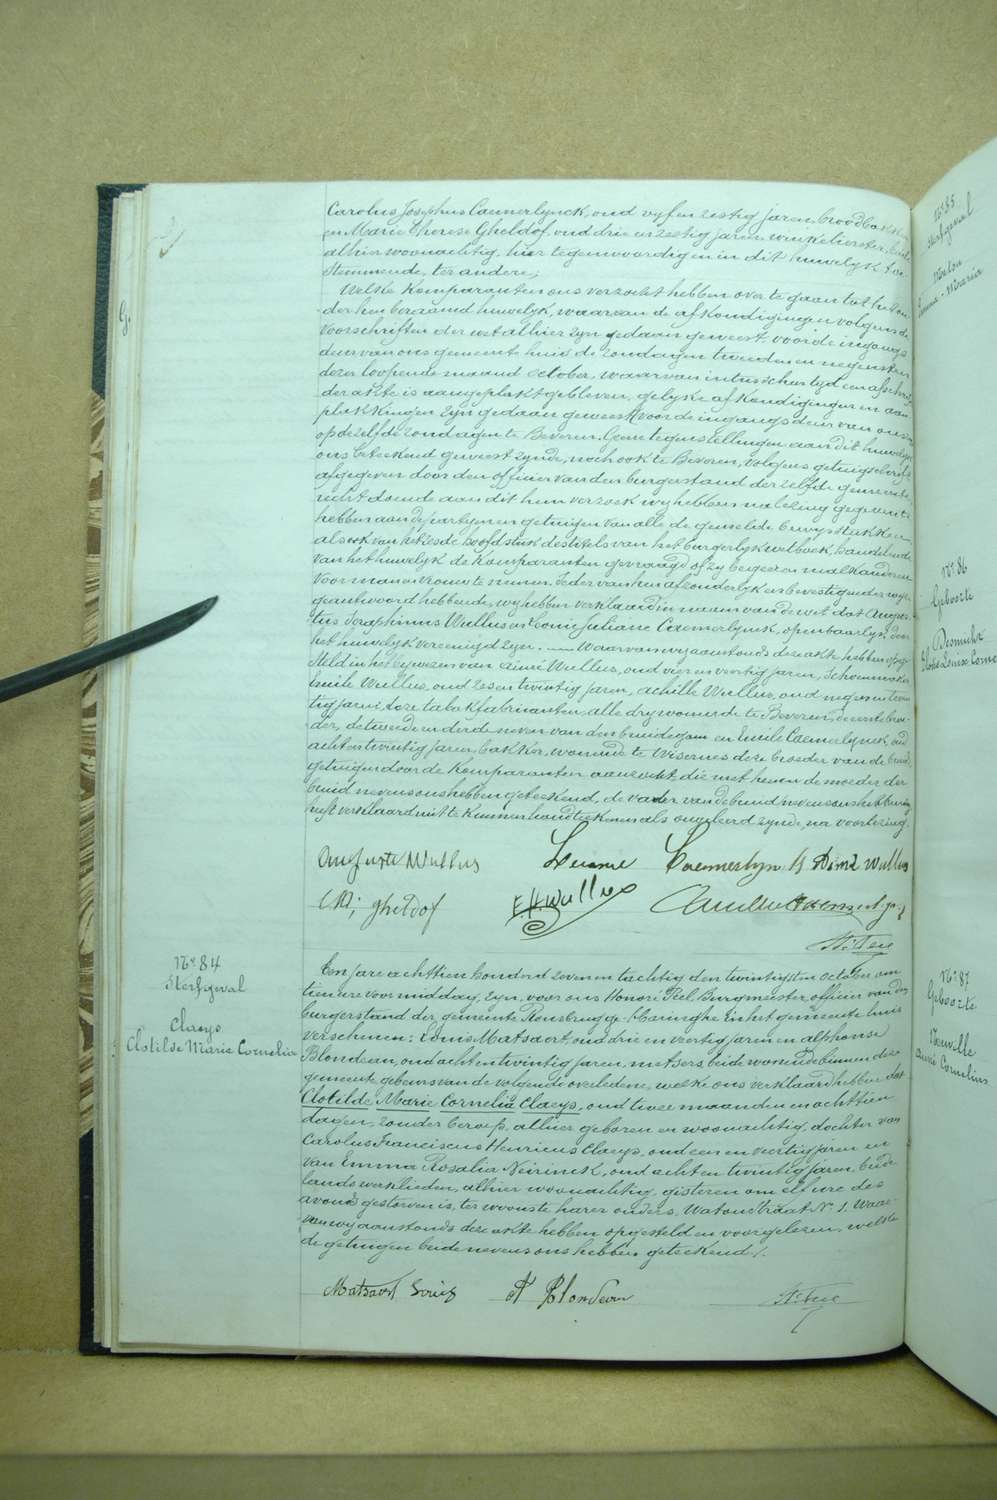 Carolus Josephus Caemerlynck, oud vyf en zestig jaren, broodbakker
en Marie Therese Gheldof, oud drie en zestig jaren, winkelierster, beide
alhier woonachtig, hier tegenwoordig en in dit huwelyk toe
stemmende, ter andere;
Welke komparanten ons verzocht hebben over te gaan tot het on
der hen beraamd huwelyk, waarvan de afkondigingen volgens de
voorschriften der wet alhier zyn gedaan geweest, voor de ingangs
deur van ons gemeente huis de zondagen tweeden en negensten
dezer loopende maand october, waarvan intusschen tyd een afschrift
der akte is aangeplakt gebleven, gelyke afkondigingen en aan
plakkingen zyn gedaan geweest voor de ingangs deur van ons
op dezelfde zondagen te Beveren. Geene tegenstellingen aan dit huwelyk
ons beteekend geweest zynde, noch ook te Beveren, volgens getuigschrift
afgegeven door den officier van den burgerstand der zelfde gemeente
recht doende aan dit hun verzoek wy hebben na lezing gegeven te
hebben aan de partyen en getuigen van alle de gemelde bewysstukken,
alsook van het zesde hoofdstuk des titels van het burgerlyk wetboek, handelende
van het huwelyk de komparanten gevraagd of zy begeeren malkanderen
voor man en vrouw te nemen. Ieder van hen afzonderlyk en bevestigender wyze
geantwoord hebbende, wy hebben verklaard in naam van de wet dat Augus
tus Seraphinus Wullus en Leonie Juliane Caemerlynck, openbaarlyk door
het huwelyk vereenigd zyn. — Waarvan wy aanstonds deze akte hebben opge
steld in het bywezen van Aimé Wullus, oud vier en veertig jaren, schoenmaker
Emile Wullus, oud zes en twintig jaren, Achille Wullus, oud negen en twin
tig jaren, deze tabakfabrikanten, alle dry wonende te Beveren, de eerste broe
der, de tweede en derde neven van den bruidegom en Emile Caemerlynck, oud
acht en twintig jaren, bakker, wonende te Wisernes deze broeder van de bruid,
getuigen door de komparanten aanzocht, die met hen en de moeder der
bruid nevens ons hebben geteekend, de vader van de bruid nevens ons
heeft verklaard niet te kunnen handteekenen als ongeleerd zynde, na voorlezing.
Auguste Wullus Leonie Caemerlynck Aimé Wullus
M. Gheldof E. H. Wullus
H. Peel
Nr 84
Sterfgeval
Claeys
Clotilde Marie Cornelia
Een jare achttien honderd zeven en tachtig den twintigsten October om
tien ure voormiddag, zyn, voor ons Honoré Peel Burgmeester, officier van den
burgerstand der gemeente Rousbrugge-Haringhe in het gemeente huis
verschenen: Louis Matsaert, oud drie en veertig jaren en Alphonse
Blondeau, oud acht en twintig jaren, metsers, beide wonende binnen deze
gemeente gebeurs van de volgende overledene, welke ons verklaard hebben dat
Clotilde Marie Cornelia Claeys, oud twee maanden en achttien
dagen, zonder beroep, alhier geboren en woonachtig, dochter van
Carolus Franciscus Henricus Claeys, oud een en veertig jaren en
van Emma Rosalia Neirinck, oud acht en twintig jaren, beide
landswerklieden, alhier woonachtig, gisteren om elf ure des
avonds gestorven is, ter woonste harer ouders, Watoustraat No 1. Waar
van wy aanstonds deze akte hebben opgesteld en voorgelezen, welke
de getuigen beide nevens ons hebben geteekend /.
Matsaert Louis A Blondeau H. Peel
Nr 85
Sterfgeval
Nr 86
Geboorte
Nr 87
Geboorte